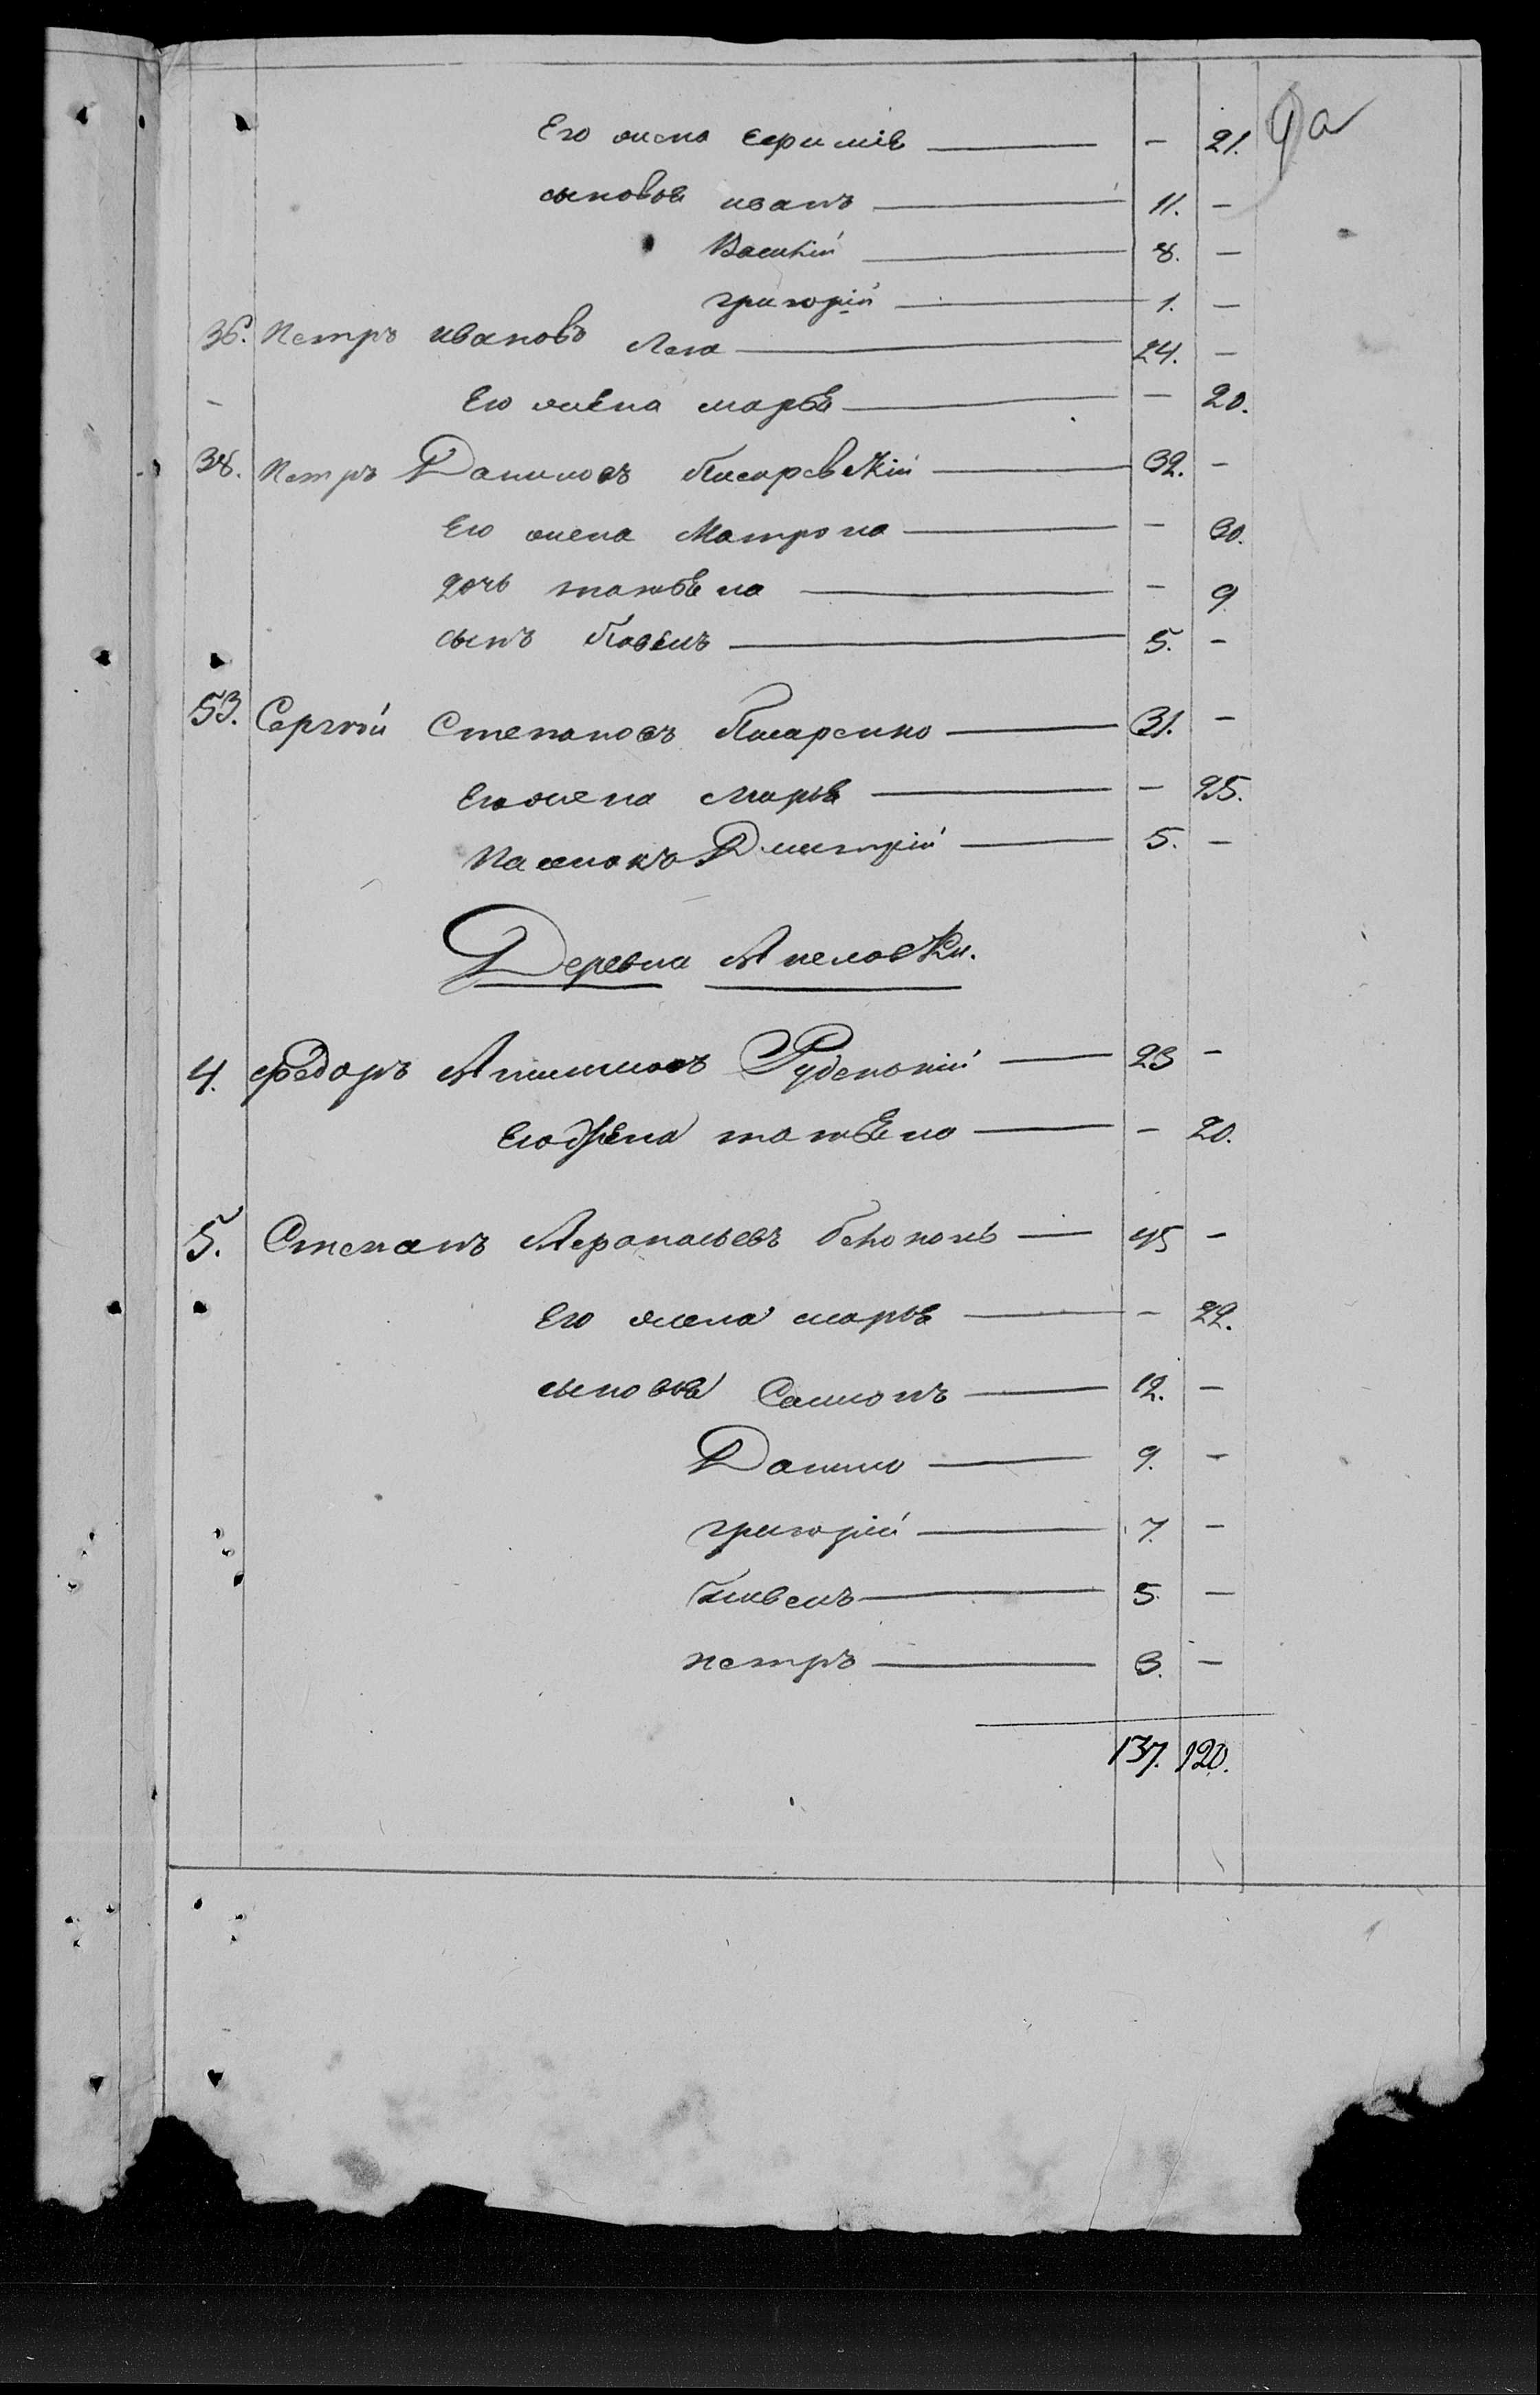 9а
Его жена Ефимiя — 21.
сыновья иванъ 11. —
Василiй 8. —
григорiй 1. —
36. Петръ ивановъ Лега 24. —
— Его жена марья — 20.
38. Петръ Даниловъ Писаревскiй 32. —
Его жена Матрона — 30.
дочь татьяна — 9
сынъ Павелъ 5. —
53. Сергѣй Степановъ Писаренко 31. —
Его жена Марья — 25.
Пасынокъ Дмитрiй 5. —
Деревня
4. федоръ Рудскiй 23 —
Его Жена татьяна — 20.
5. Степанъ Афанасьевъ 45 —
Его жена марья — 22.
сыновья Самсонъ 12. —
Данило 9. —
григорiй 7. —
Павелъ 5. —
петръ 3. —
137. 120.